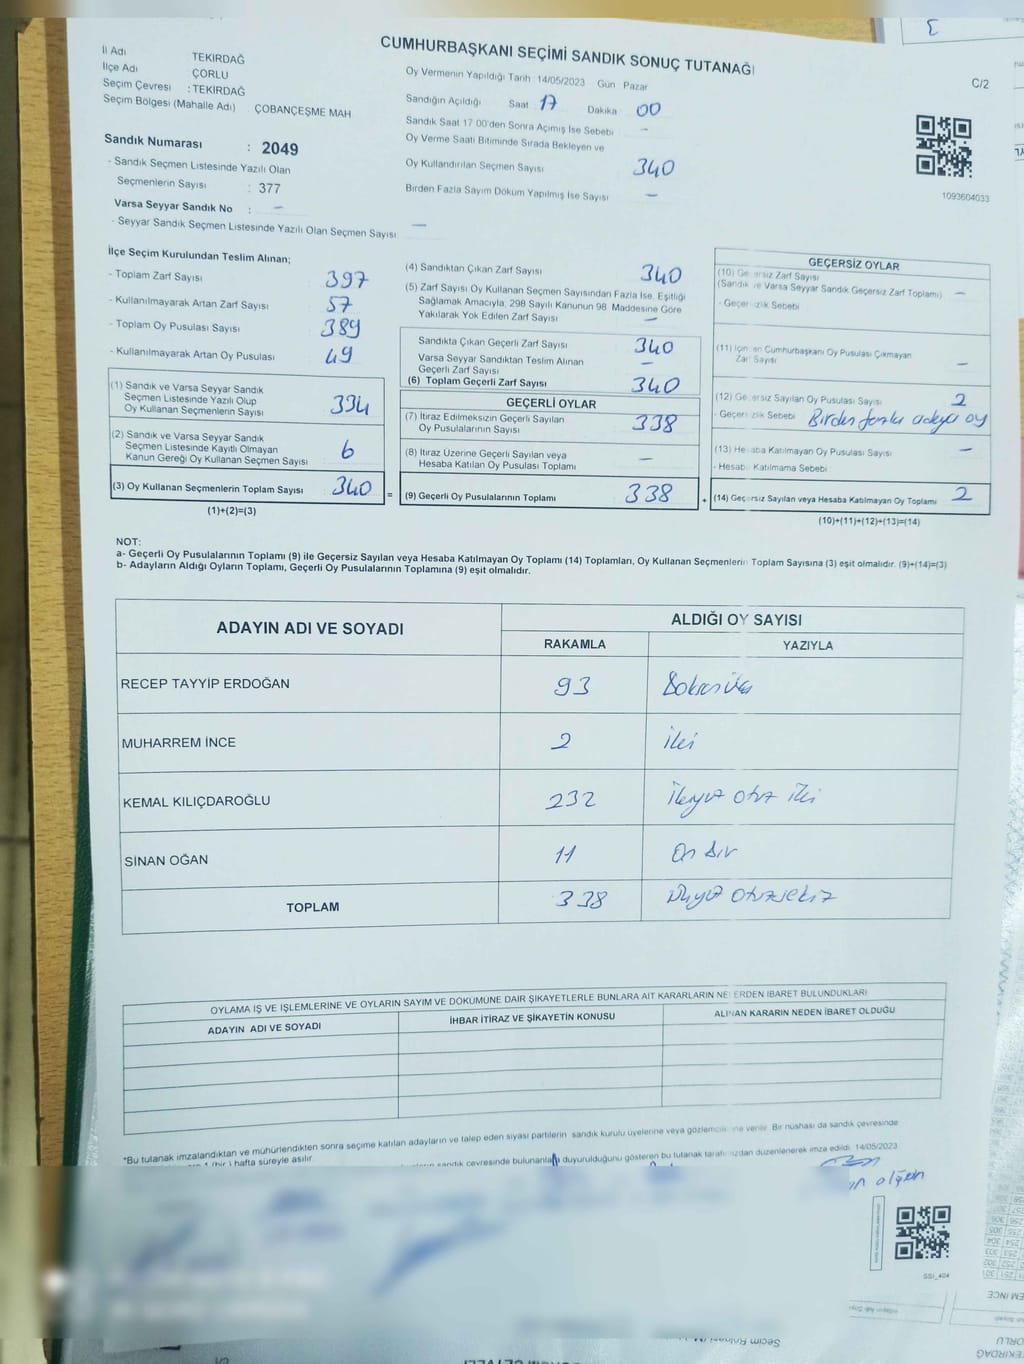 CUMHURBAŞKANI SEÇİMİ SANDIK SONUÇ TUTANAĞI
C/2
İl Adı TEKİRDAĞ
İlçe Adı ÇORLU
Seçim Çevresi : TEKİRDAĞ
Seçim Bölgesi (Mahalle Adı) ÇOBANÇEŞME MAH
Oy Vermenin Yapıldığı Tarih 14/05/2023 Gün Pazar
Sandığın Açıldığı Saat 17 Dakika 00
Sandık Saat 17 00'den Sonra Açılmış İse Sebebi –
Oy Verme Saati Bitiminde Sırada Bekleyen ve
Oy Kullandırılan Seçmen Sayısı 340
Birden Fazla Sayım Döküm Yapılmış İse Sayısı –
1093604033
Sandık Numarası : 2049
- Sandık Seçmen Listesinde Yazılı Olan
Seçmenlerin Sayısı : 377
Varsa Seyyar Sandık No : –
- Seyyar Sandık Seçmen Listesinde Yazılı Olan Seçmen Sayısı –
İlçe Seçim Kurulundan Teslim Alınan;
- Toplam Zarf Sayısı 397
- Kullanılmayarak Artan Zarf Sayısı 57
- Toplam Oy Pusulası Sayısı 389
- Kullanılmayarak Artan Oy Pusulası 49
(1) Sandık ve Varsa Seyyar Sandık
Seçmen Listesinde Yazılı Olup
Oy Kullanan Seçmenlerin Sayısı 334
(2) Sandık ve Varsa Seyyar Sandık
Seçmen Listesinde Kayıtlı Olmayan
Kanun Gereği Oy Kullanan Seçmen Sayısı 6
(3) Oy Kullanan Seçmenlerin Toplam Sayısı 340
(1)+(2)=(3)
(4) Sandıktan Çıkan Zarf Sayısı 340
(5) Zarf Sayısı Oy Kullanan Seçmen Sayısından Fazla İse, Eşitliği
Sağlamak Amacıyla, 298 Sayılı Kanunun 98. Maddesine Göre
Yakılarak Yok Edilen Zarf Sayısı –
Sandıkta Çıkan Geçerli Zarf Sayısı 340
Varsa Seyyar Sandıktan Teslim Alınan
Geçerli Zarf Sayısı –
(6) Toplam Geçerli Zarf Sayısı 340
GEÇERLİ OYLAR
(7) İtiraz Edilmeksizin Geçerli Sayılan
Oy Pusulalarının Sayısı 338
(8) İtiraz Üzerine Geçerli Sayılan veya
Hesaba Katılan Oy Pusulası Toplamı –
= (9) Geçerli Oy Pusulalarının Toplamı 338 +
GEÇERSİZ OYLAR
(10) Geçersiz Zarf Sayısı
(Sandık ve Varsa Seyyar Sandık Geçersiz Zarf Toplamı) –
- Geçersizlik Sebebi
(11) İçinden Cumhurbaşkanı Oy Pusulası Çıkmayan
Zarf Sayısı –
(12) Geçersiz Sayılan Oy Pusulası Sayısı 2
- Geçersizlik Sebebi Birden fazla adaya oy
(13) Hesaba Katılmayan Oy Pusulası Sayısı –
- Hesaba Katılmama Sebebi
(14) Geçersiz Sayılan veya Hesaba Katılmayan Oy Toplamı 2
(10)+(11)+(12)+(13)=(14)
NOT:
a- Geçerli Oy Pusulalarının Toplamı (9) ile Geçersiz Sayılan veya Hesaba Katılmayan Oy Toplamı (14) Toplamları, Oy Kullanan Seçmenlerin Toplam Sayısına (3) eşit olmalıdır. (9)+(14)=(3)
b- Adayların Aldığı Oyların Toplamı, Geçerli Oy Pusulalarının Toplamına (9) eşit olmalıdır.
ADAYIN ADI VE SOYADI ALDIĞI OY SAYISI
RAKAMLA YAZIYLA
RECEP TAYYİP ERDOĞAN 93 Doksan üç
MUHARREM İNCE 2 iki
KEMAL KILIÇDAROĞLU 232 ikiyüz otuz iki
SİNAN OĞAN 11 On bir
TOPLAM 338 üçyüz otuzsekiz
OYLAMA İŞ VE İŞLEMLERİNE VE OYLARIN SAYIM VE DÖKÜMÜNE DAİR ŞİKAYETLERLE BUNLARA AİT KARARLARIN NELERDEN İBARET BULUNDUKLARI
ADAYIN ADI VE SOYADI İHBAR İTİRAZ VE ŞİKAYETİN KONUSU ALINAN KARARIN NEDEN İBARET OLDUĞU
*Bu tutanak imzalandıktan ve mühürlendikten sonra seçime katılan adayların ve talep eden siyasi partilerin sandık kurulu üyelerine veya gözlemcilerine verilir. Bir nüshası da sandık çevresinde
1 (bir) hafta süreyle asılır.
sandık çevresinde bulunanlara duyurulduğunu gösteren bu tutanak tarafımızdan düzenlenerek imza edildi. 14/05/2023
SSİ_404